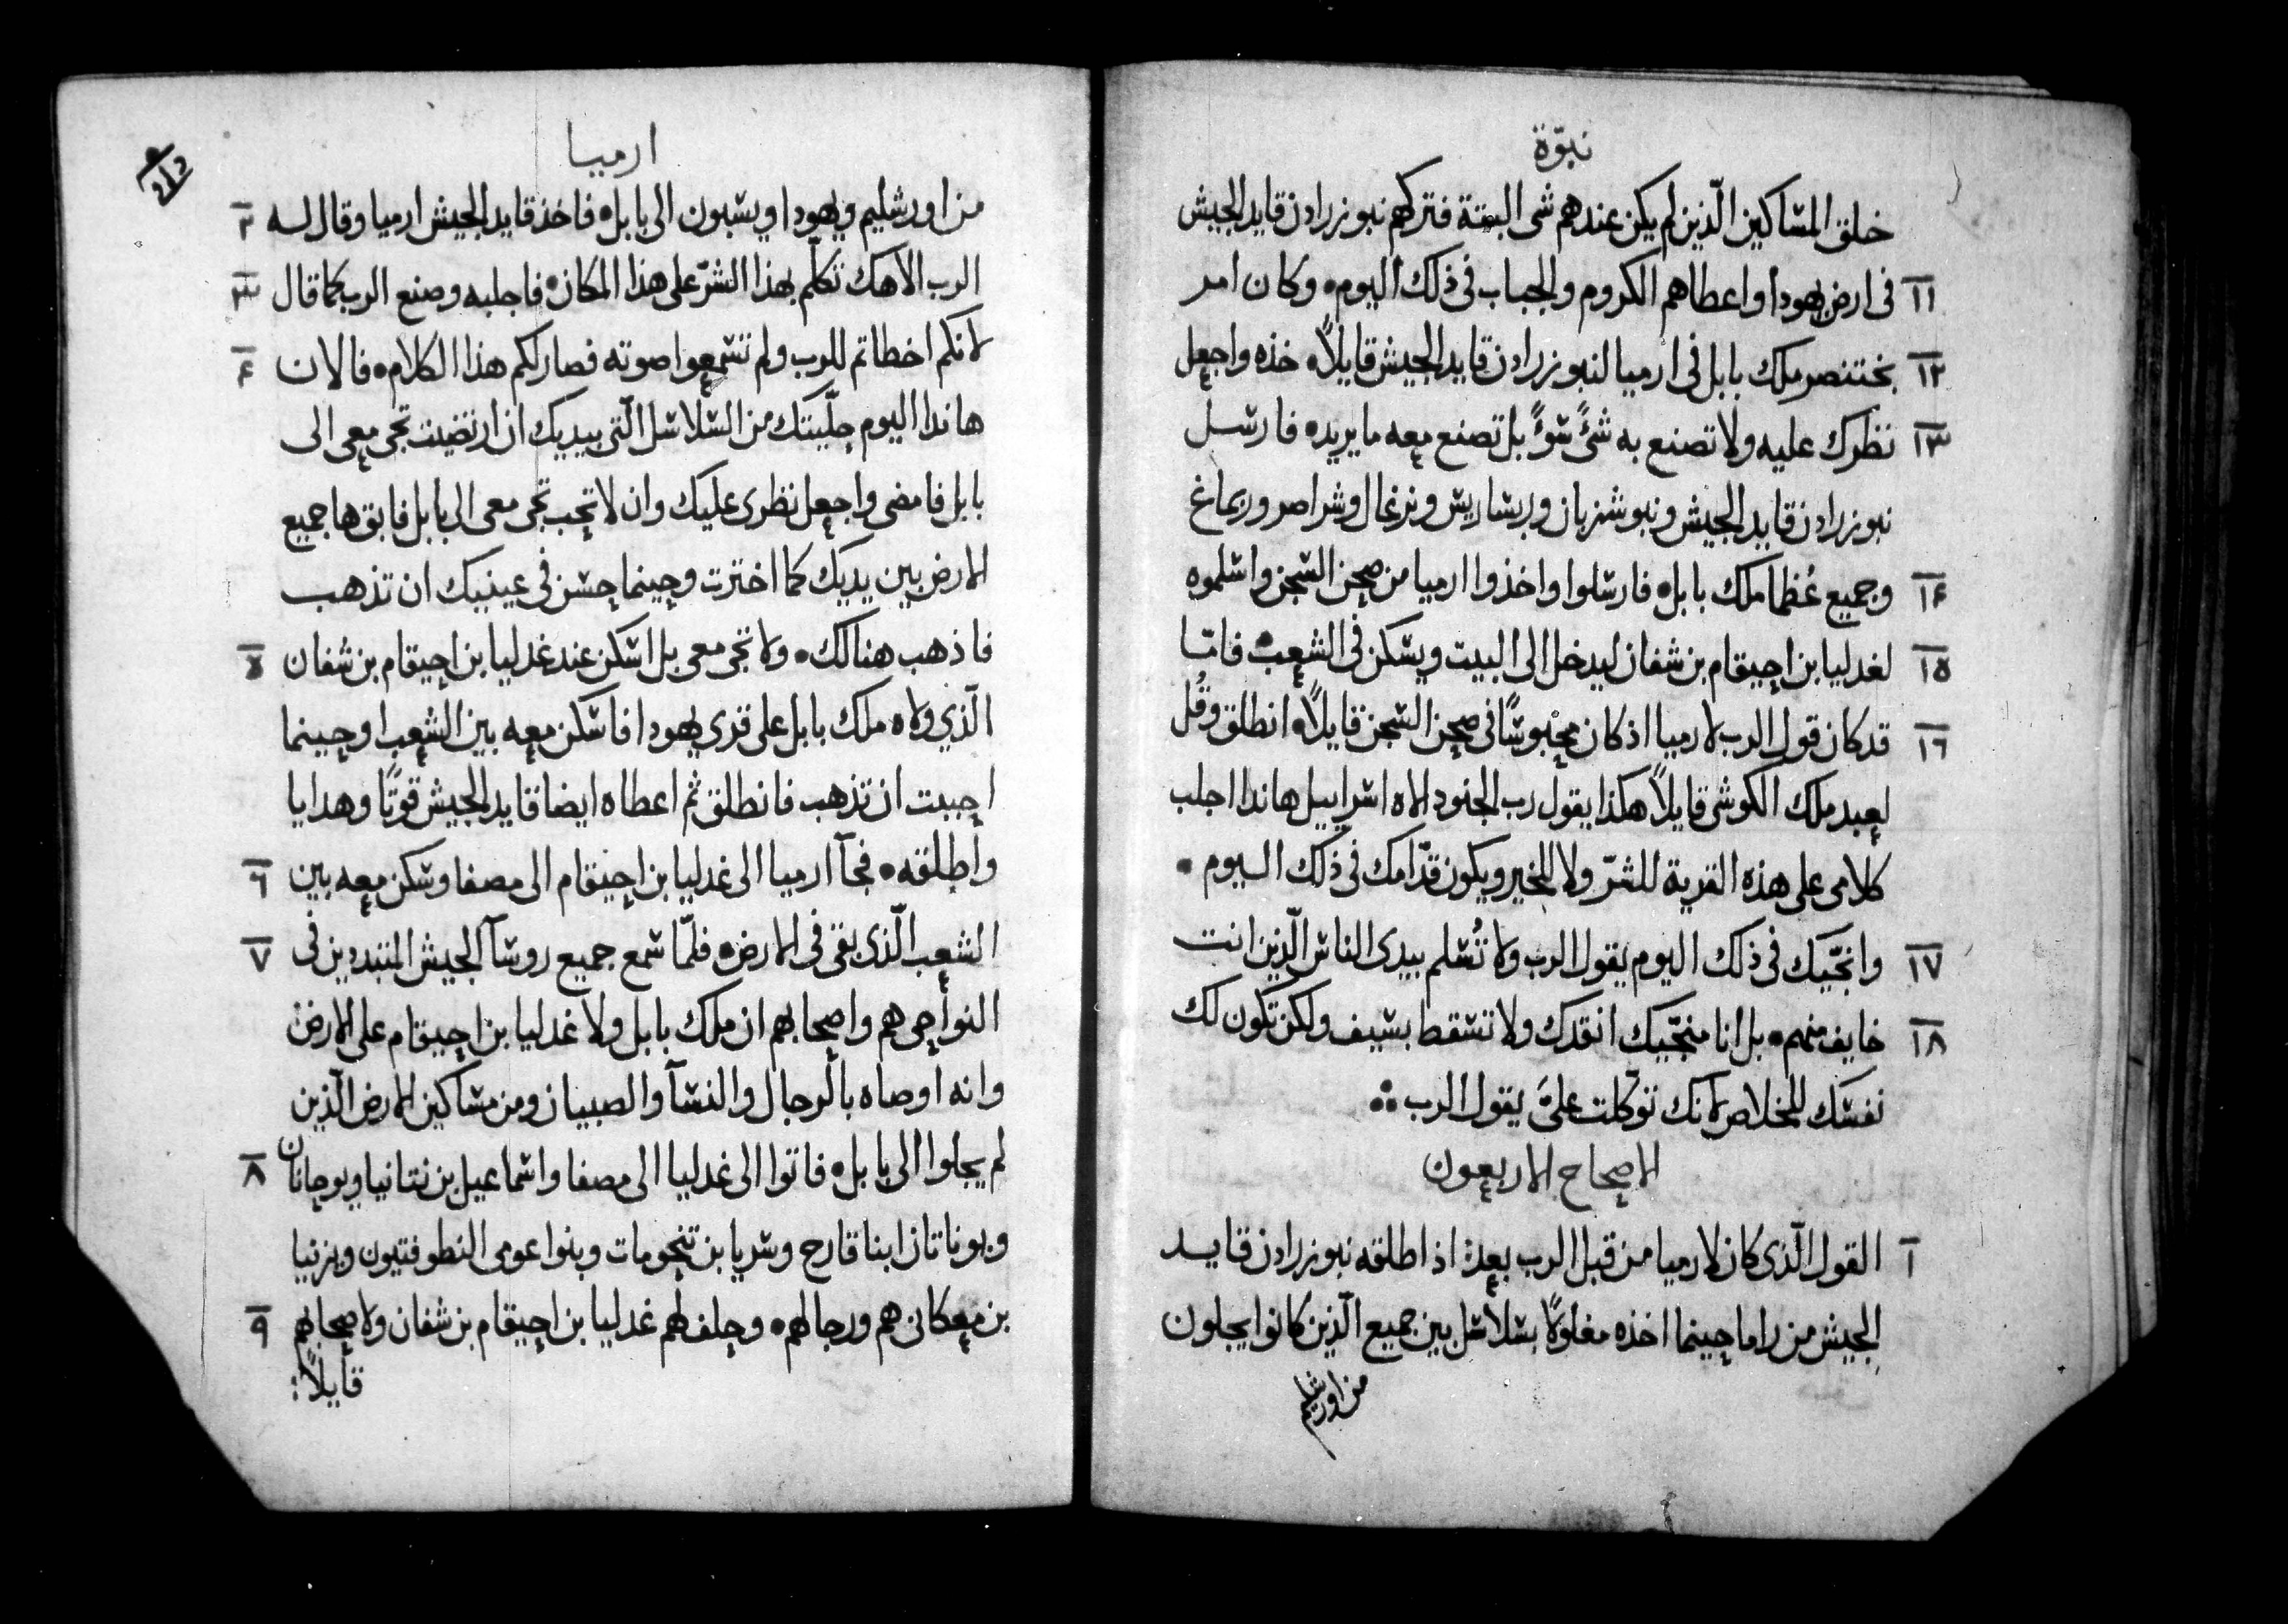 نبوّة
خلق المساكين الّذين لم يكن عندهم شى البتة فتركهم نبوزرادن قايد الجيش
١١ فى ارض يهودا واعطاهم الكروم والجباب فى ذلك اليوم • وكان امر
١٢ بختنصر ملك بابل فى ارميا لنبوزرادن قايد الجيش قايلاً • خذه واجعل
١٣ نظرك عليه ولا تصنع به شىً سوًّ بل تصنع معه ما يريد • فارسل
نبوزرادن قايد الجيش ونبوشزبان وربساريس ونرغال وشراصر وربماغ
١٤ وجميع عُظما ملك بابل • فارسلوا واخذوا ارميا من صحن السجن واسلموه
١٥ لغدليا بن احيقام بن شفان ليدخل الى البيت ويسكن فى الشعب • فامّا
١٦ قد كان قول الرب لارميا اذ كان محبوسًا فى صحن السجن قايلاً • انطلق وقُل
لعبد ملك الكوشى قايلاً هكذا يقول رب الجنود الاه اسراييل هاندا اجلب
كلامى على هذه القرية للشرّ ولا للخير ويكون قدّامك فى ذلك اليوم •
١٧ وانجّيك فى ذلك اليوم يقول الرب ولا تُسلم بيدى الناس الّذين انت
١٨ خايف منهم • بل انا منجّيك انقدك ولا تسقط بسيف ولكن تكون لك
نفسك للخلاص لانك توكّلت علىّ يقول الرب
الاصحاح الاربعون
١ القول الّذى كان لارميا من قبل الرب بعد اذ اطلقه نبوزرادن قايد
الجيش من راما حينما اخذه مغلولاً بسلاسل بين جميع الّذين كانوا يجلون
من اورشليم
ارميا
٢١٢
من اورشليم ويهودا ويسبون الى بابل • فاخذ قايد الجيش ارميا وقال له ٢
الرب الاهك تكلّم بهذا الشرّ على هذا المكان • فاجلبه وصنع الرب كما قال ٣
لانكم اخطاتم للرب ولم تسمعوا صوته فصار لكم هذا الكلام • فالان ٤
هاندا اليوم حلّيتك من السلاسل الّتى بيديك ان ارتضيت تجى معى الى
بابل فامضى واجعل نظرى عليك وان لا تحب تجى معى الى بابل فابق ها جميع
الارض بين يديك كما اخترت وحينما حسن فى عينيك ان تذهب
فاذهب هنالك • ولا تجى معى بل اسكن عند غدليا بن احيقام بن شفان ٥
الّذي ولاه ملك بابل على قرى يهودا فاسكن معه بين الشعب او حينما
احببت ان تذهب فانطلق ثم اعطاه ايضا قايد الجيش قوتًا وهدايا
واطلقه • فجآ ارميا الى غدليا بن احيقام الى مصفا وسكن معه بين ٦
الشعب الّذى بقى فى الارض • فلمّا سمع جميع روسآ الجيش المتبددين فى ٧
النواحى هم واصحابهم ان ملك بابل ولا غدليا بن احيقام على الارض
وانه اوصاه بالرجال والنسآ والصبيان ومن مساكين الارض الّذين
لم يجلوا الى بابل • فاتوا الى غدليا الى مصفا واسماعيل بن نتانيا ويوحانان ٨
ويوناتان ابنا قارح وسريا بن تنحومات وبنوا عومى النطوفتيون ويزنيا
بن معكاتى هم ورجالهم • وحلف لهم غدليا بن احيقام بن شفان ولاصحابهم ٩
قايلاً :